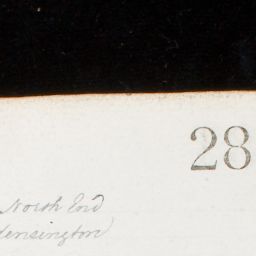 28
North End
Kensington